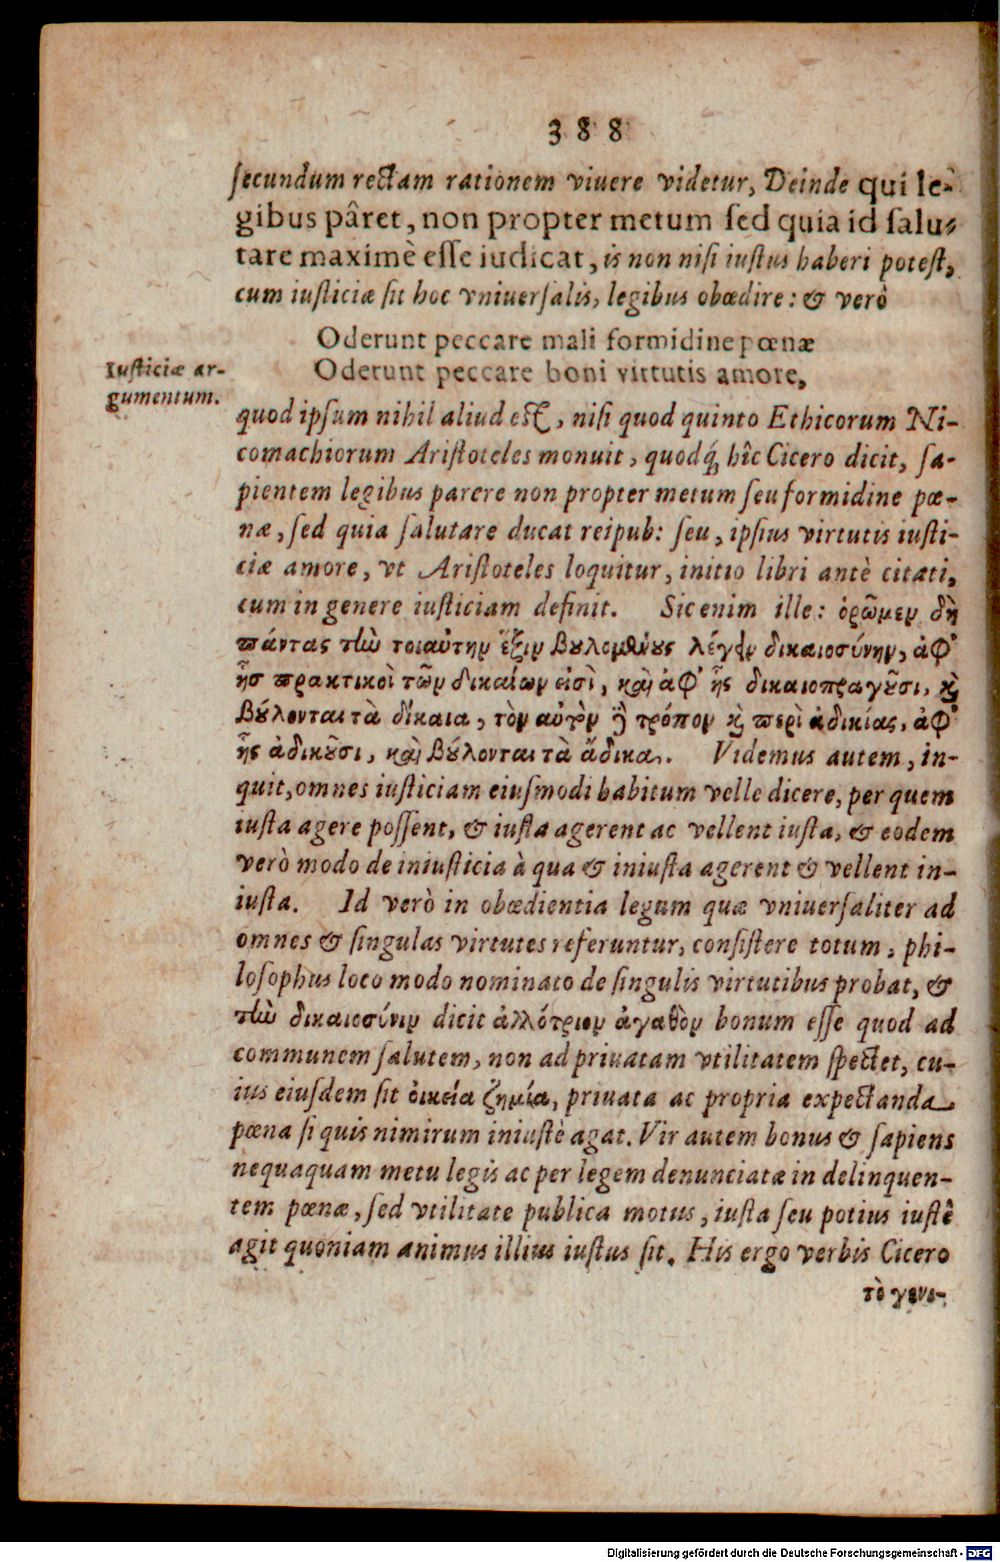 388
ſecundum rectam rationem viuere videtur, Deinde qui le-
gibus pâret, non propter metum ſed quia id ſalu-
tare maximè eſſe iudicat, is non niſi iuſtus haberi poteſt,
cum iuſticiæ ſit hoc vniuerſalis, legibus obœdire: & verò
Oderunt peccare mali formidine pœnæ
Oderunt peccare boni virtutis amore,
Iuſticiæ ar-
gumentum.
quod ipſum nihil aliud eſt, niſi quod quinto Ethicorum Ni-
comachiorum Ariſtoteles monuit, quodq́; hîc Cicero dicit, ſa-
pientem legibus parere non propter metum ſeu formidine pœ-
næ, ſed quia ſalutare ducat reipub: ſeu, ipſius virtutis iuſti-
ciæ amore, vt Ariſtoteles loquitur, initio libri antè citati,
cum in genere iuſticiam definit. Sic enim ille: ὁρῶμεν δὴ
πάντας τὴν τοιαύτην ἕξιν βουλομένους λέγειν δικαιοσύνην, ἀφ᾽
ἧσ πρακτικοὶ τῶν δικαίων εἰσὶ, καὶ ἀφ᾽ ἧς δικαιοπραγοῦσι, καὶ
βούλονται τὰ δίκαια, τὸν αὐτὸν δὲ τρόπον καὶ περὶ ἀδικίας, ἀφ᾽
ἧς ἀδικοῦσι, καὶ βούλονται τὰ ἄδικα. Videmus autem, in-
quit, omnes iuſticiam eiuſmodi habitum velle dicere, per quem
iuſta agere poſſent, & iuſta agerent ac vellent iuſta, & eodem
verò modo de iniuſticia à qua & iniuſta agerent & vellent in-
iuſta. Id verò in obœdientia legum quæ vniuerſaliter ad
omnes & ſingulas virtutes referuntur, conſiſtere totum, phi-
loſophus loco modo nominato de ſingulis virtutibus probat, &
τὴν δικαιοσύνιν dicit ἀλλότριον ἀγαθὸν bonum eſſe quod ad
communem ſalutem, non ad priuatam vtilitatem ſpectet, cu-
ius eiuſdem ſit ὀικεία ζημία, priuata ac propria expectanda
pœna ſi quis nimirum iniuſtè agat. Vir autem bonus & ſapiens
nequaquam metu legis ac per legem denunciatæ in delinquen-
tem pœnæ, ſed vtilitate publica motus, iuſta ſeu potius iuſtè
agit quoniam animus illius iuſtus ſit. His ergo verbis Cicero
τὸ γενι-
Digitalisierung gefördert durch die Deutsche Forschungsgemeinschaft - DFG